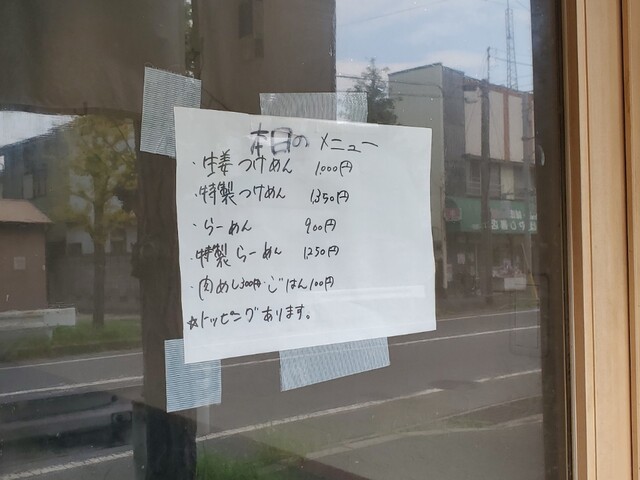 本日のメニュー
・生姜つけめん 1,000円
・特製つけめん 1,350円
・らーめん 900円
・特製らーめん 1250円
・肉めし300円・ごはん100円
☆トッピングあります。